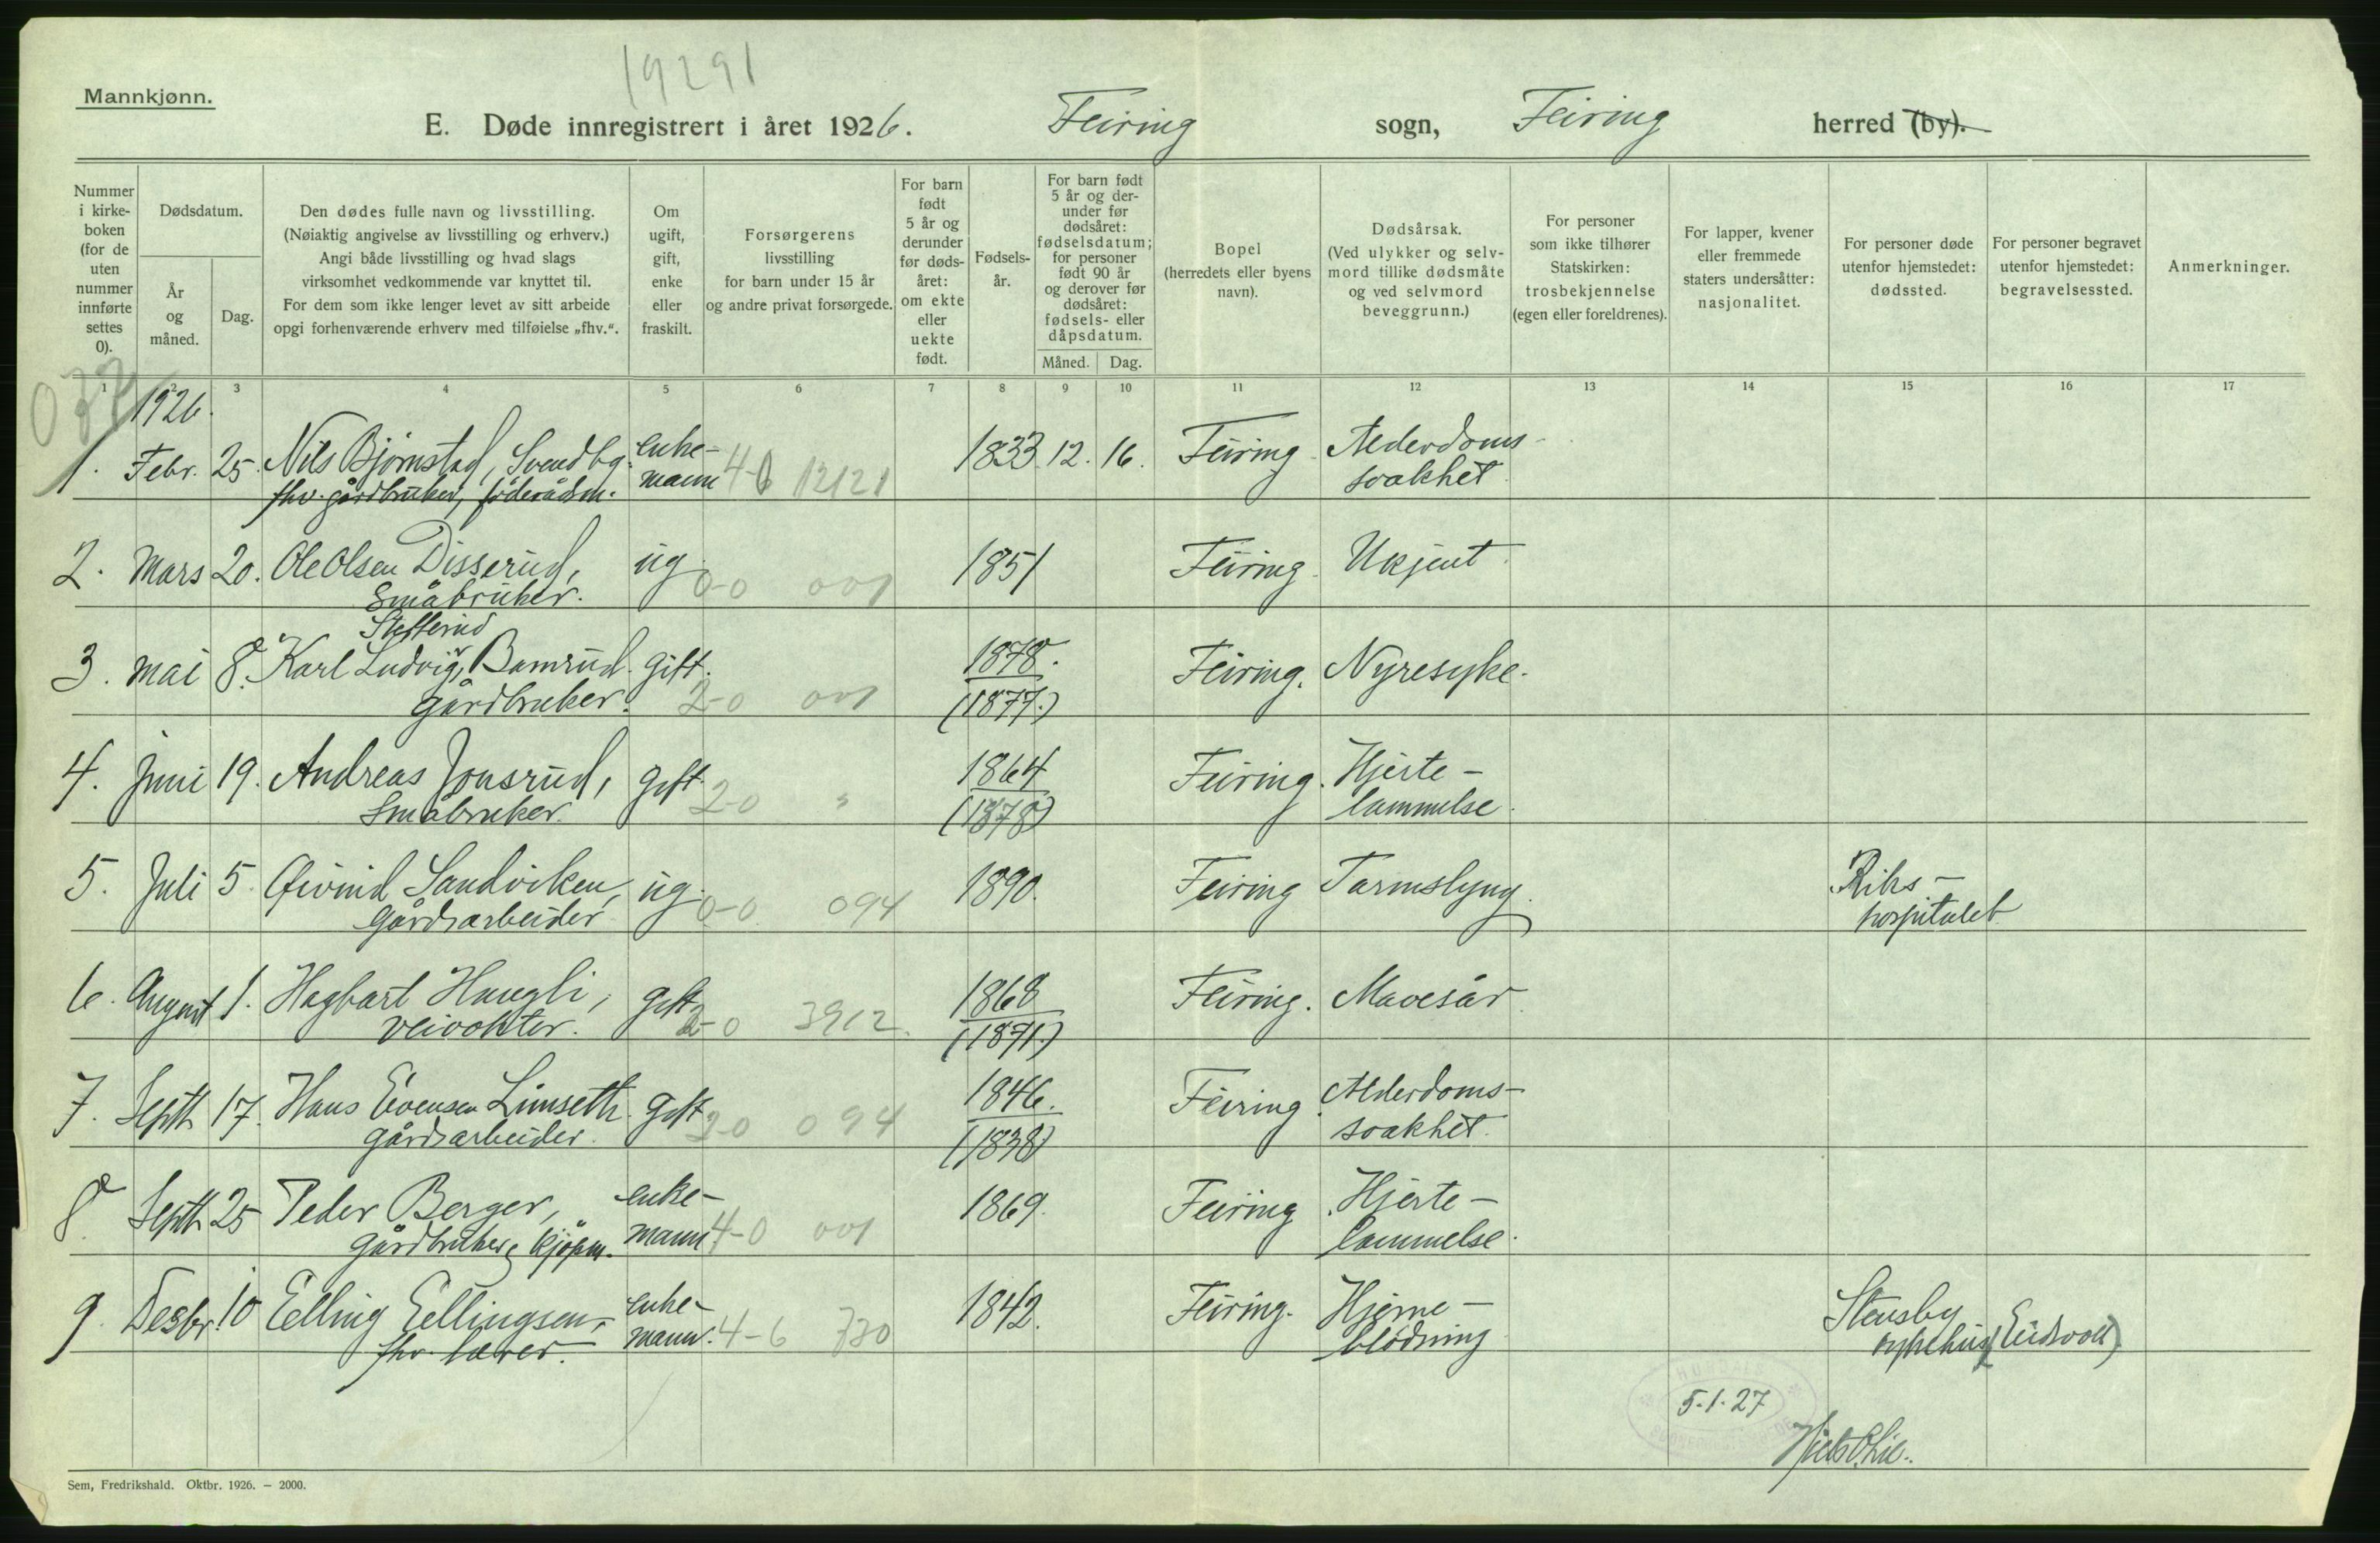 19291
Mannkjønn.
E. Døde innregistrert i året 1926. Feiring sogn, Feiring herred (by).
Nummer i kirke-boken (for de uten nummer innførte settes 0).
Dødsdatum.
År og måned.
Dag.
Den dødes fulle navn og livsstilling.
(Nøiaktig angivelse av livsstilling og erhverv.)
Angi både livsstilling og hvad slags
virksomhet vedkommende var knyttet til.
For dem som ikke lenger levet av sitt arbeide
opgi forhenværende erhverv med tilføielse „fhv.“.
Om ugift, gift, enke eller fraskilt.
Forsørgerens
livsstilling
for barn under 15 år
og andre privat forsørgede.
For barn født 5 år og derunder før døds-året: om ekte eller uekte født.
Fødsels-år.
For barn født 5 år og der-under før dødsåret: fødselsdatum; for personer født 90 år og derover før dødsåret: fødsels- eller dåpsdatum.
Måned. Dag.
Bopel
(herredets eller byens
navn).
Dødsårsak.
(Ved ulykker og selv-
mord tillike dødsmåte
og ved selvmord
beveggrunn.)
For personer
som ikke tilhører
Statskirken:
trosbekjennelse
(egen eller foreldrenes).
For lapper, kvener
eller fremmede
staters undersåtter:
nasjonalitet.
For personer døde
utenfor hjemstedet:
dødssted.
For personer begravet
utenfor hjemstedet:
begravelsessted.
Anmerkninger.
1 2 3 4 5 6 7 8 9 10 11 12 13 14 15 16 17
1926.
1. Febr. 25. Nils Bjørnstad, Svendby. enke- 1833 12. 16. Feiring Alderdoms-
fhv. gårdbruker, föderådsm. mann 4-6 12121 svakhet
2. Mars 20. Ole Olsen Disserud, ug. 0-0 001 1851 Feiring. Ukjent.
Småbruker.
Stefferud
3. mai 8. Karl Ludvig, Bamrud. gift. 1878. Feiring. Nyresyke.
gårdbruker. 2-0 001 (1877.)
4. Juni 19. Andreas Jonsrud, gift. 1864 Feiring. Hjerte-
Småbruker. 2-0 " (1878) lammelse.
5. Juli 5. Øivind Sandviken, ug. 0-0 094 1890. Feiring Tarmslyng. Riks-
Gårdsarbeider. hospitalet
6. August 1. Hagbart Haugli, gift 1868 Feiring. Mavesår
veivokter. 2-0 3912. (1871.)
7. Septb 17. Hans Evensen Limseth. gift 1846. Feiring. Alderdoms-
gårdsarbeider. 2-0 094 (1838) svakhet.
8. Septb 25 Peder Berger, enke- 1869. Feiring. Hjerte-
gårdbruker & kjøpm. mann 4-0 001 lammelse.
9. Desbr. 10 Elling Ellingsen, enke- 1842. Feiring. Hjerne- Stensby
fhv. lærer. mann. 4-6 730 blödning sykehus (Eidsvoll)
5.1.27
Sem, Fredrikshald. Oktbr. 1926. – 2000.